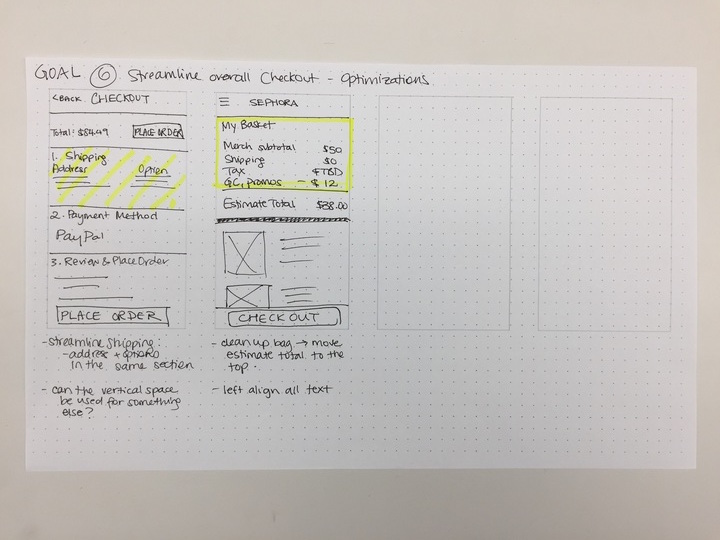 GOAL 6 Streamline overall Checkout - Optimizations
<BACK CHECKOUT
Total: $84.49 PLACE ORDER
1. Shipping
Address Option
2. Payment Method
PayPal
3. Review & Place Order
PLACE ORDER
- streamline shipping:
- address + options
in the same section
- can the vertical space
be used for something
else?
SEPHORA
My Basket
Merch subtotal $50
Shipping $0
Tax $TBD
GC, promos - $12
Estimate Total $38.00
CHECKOUT
- clean up bag → move
estimate total to the
top.
- left align all text